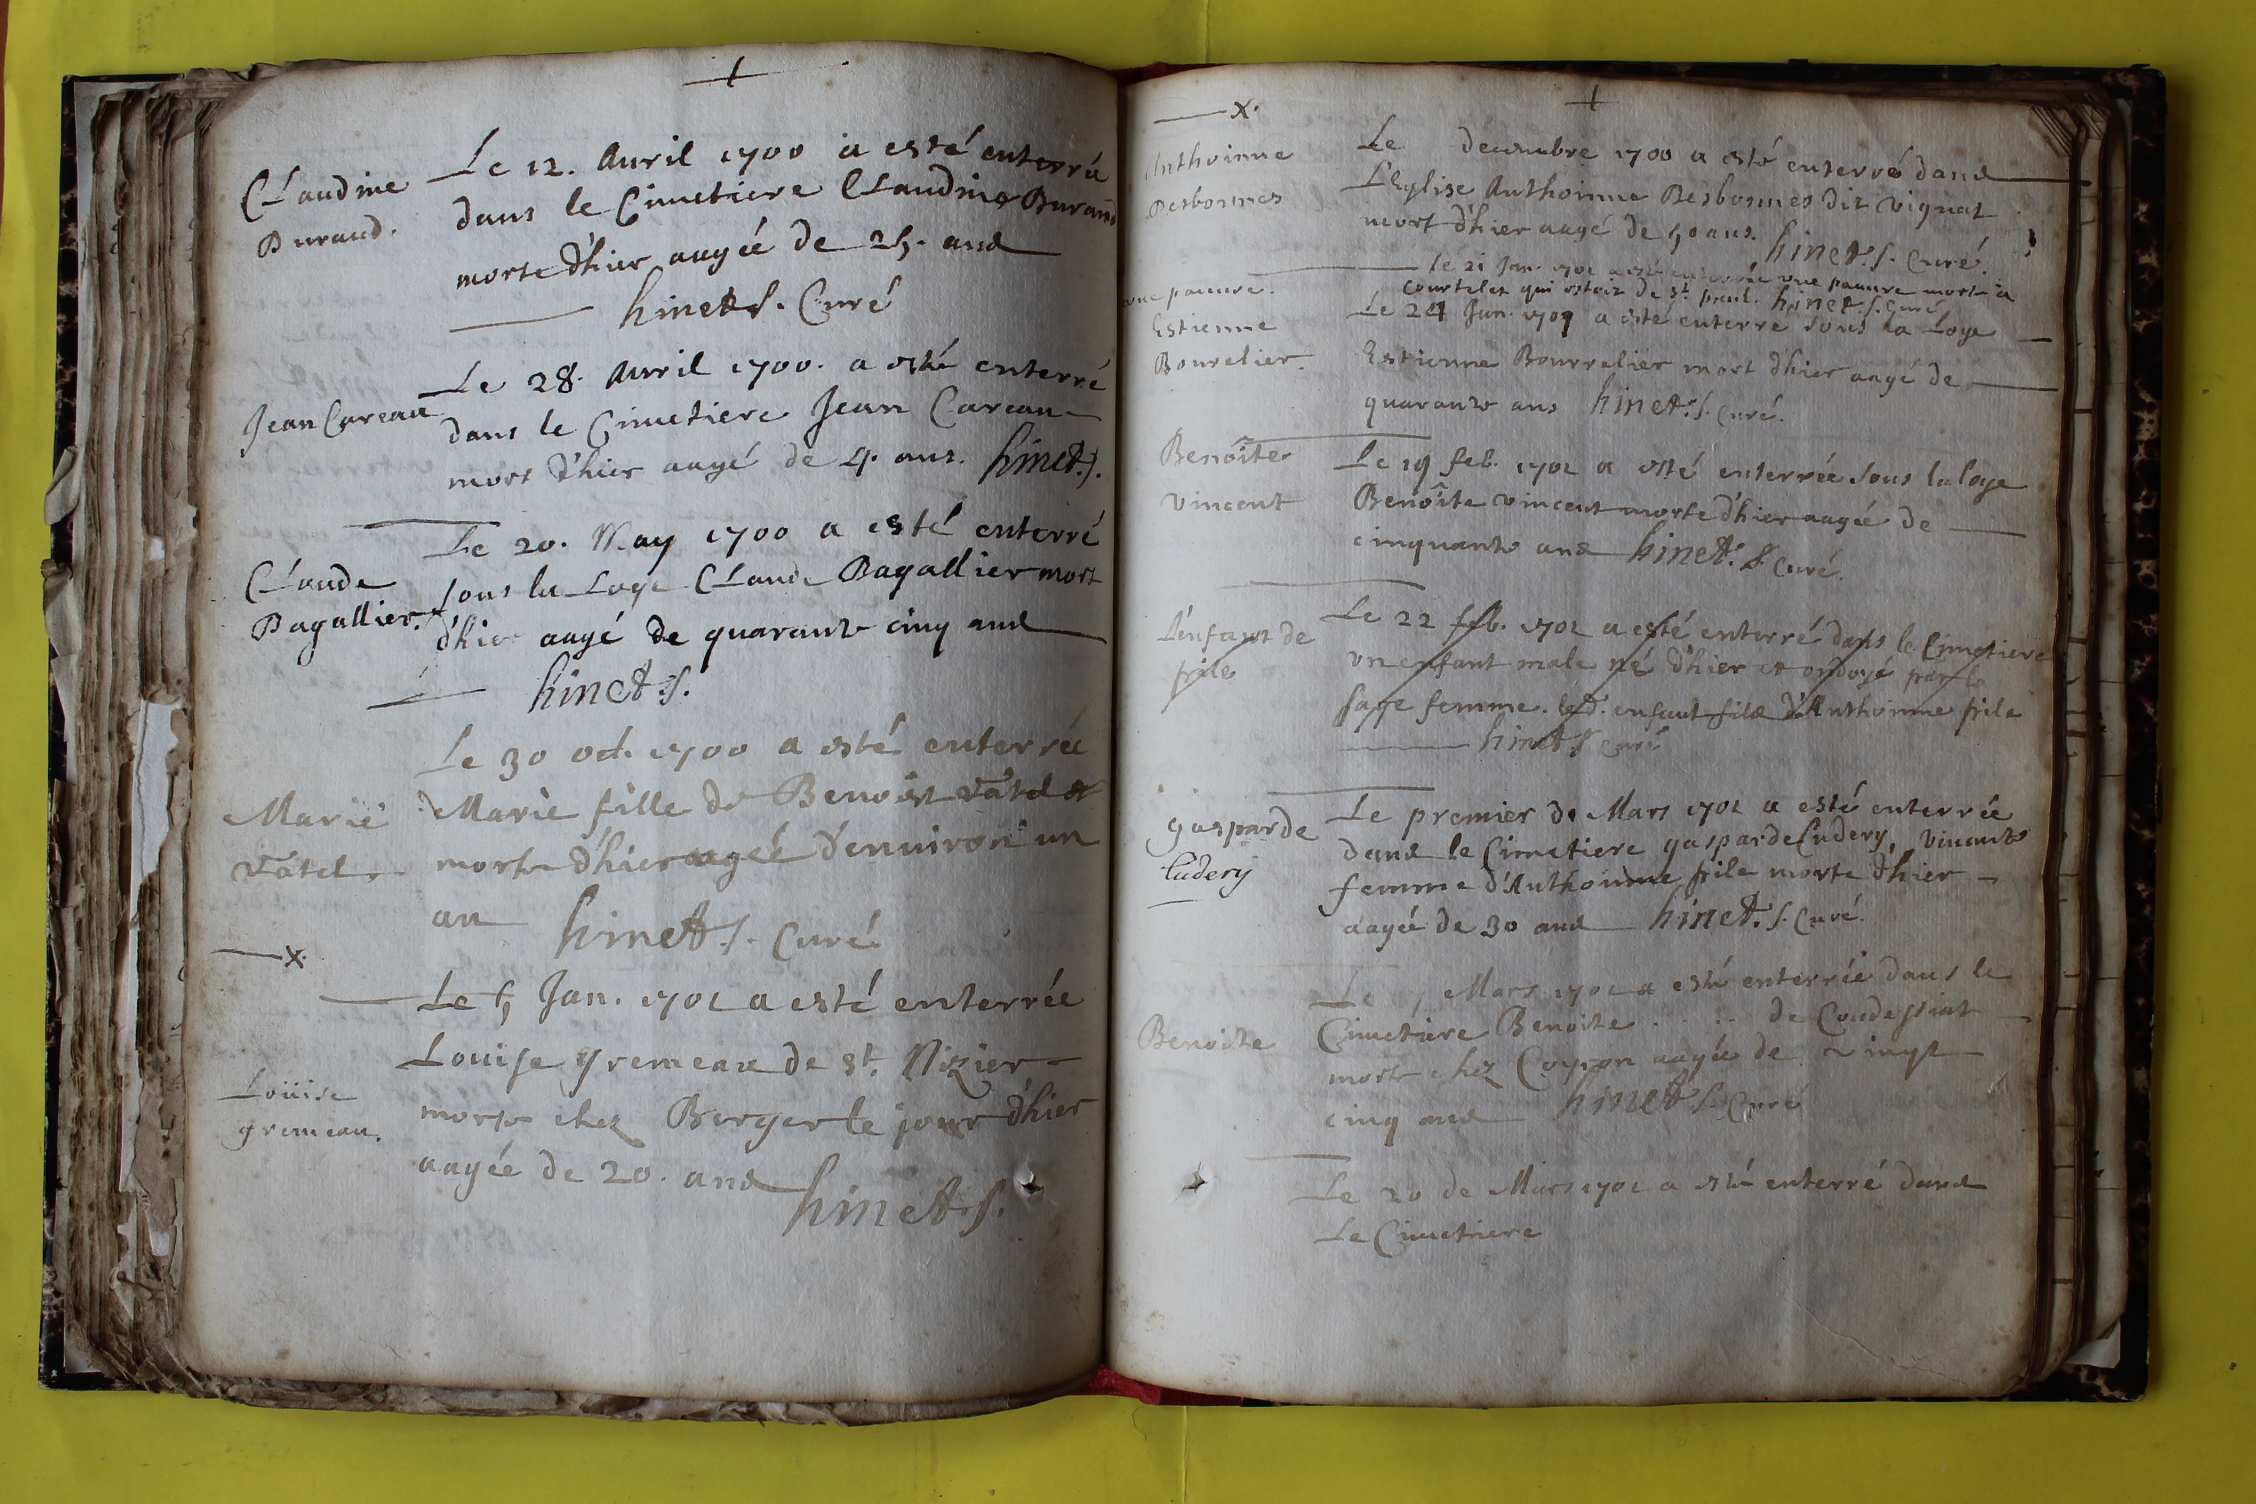 Claudine
Durand.
Le 12. Avril 1700 a esté enterrée
dans le Cimetiere Claudine Durand
morte d'hier aagée de 25. ans
hinet s. Curé
Jean Careau
Le 28. Avril 1700. a esté enterré
dans le Cimetiere Jean Careau
mort d'hier aagé de 4. ans. hinet. s.
Claude
Bagallier.
Le 20. May 1700 a esté enterré
sous la Loge Claude Bagallier mort
d'hier aagé de quarante cinq ans
hinet. s.
Marie
Vatel.
Le 30 oct. 1700 a esté enterrée
Marie fille de Benoist Vatel et
morte d'hier aageé d'enuiron un
an hinet. s. Curé
x.
Loüise
gremeau.
Le 5 Jan. 1701 a esté enterrée
Louise gremeau de St. Nizier
morte chez Berger le jour d'hier
aagée de 20. ans
hinet. s.
x.
Anthoinne
Desbonnes
Le decembre 1700 a esté enterré dans
L'Eglise Anthoinne Desbonnes dit vignat
mort d'hier aagé de 50 ans. hinet. s. Curé.
une pauure.
Le 21 Jan. 1701 a esté enterrée une pauure morte a
Courteles qui estoit de St. paul. hinet. s. Curé
Estienne
Bourelier.
Le 24 Jan. 1701 a esté enterré sous la Loge
Estienne Bourrelier mort d'hier aagé de
quarante ans hinet. s. Curé.
Benoîte
vincent
Le 19 feb. 1701 a esté enterrée sous la loge
Benoîte vincent morte d'hier aagée de
cinquante ans hinet. s. Curé.
L'enfant de
frile
Le 22 feb. 1701 a esté enterré dans le Cimetiere
un enfant male né d'hier et ondoyé par la
sage femme. led. enfant fils d'Anthoinne frile
hinet s curé
gasparde
Cudery
Le premier de Mars 1701 a esté enterrée
dans le Cimetiere gasparde Cudery, viuante
femme d'Anthoinne frile morte d'hier
aagée de 30 ans hinet. s. Curé.
Benoite
Le Mars 1701 a esté enterrée dans le
Cimetiere Benoite . . . . de Condessiat
morte chez Coyron aagée de vingt
cinq ans hinet s. Curé
Le 20 de Mars 1701 a esté enterré dans
Le Cimetiere